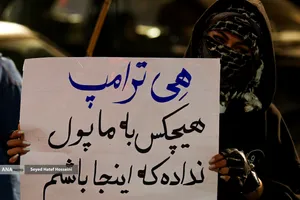 هِی ترامپ
هیچکس به ما پول
نداده که اینجا باشیم
ANA
Seyed Hatef Hosseini